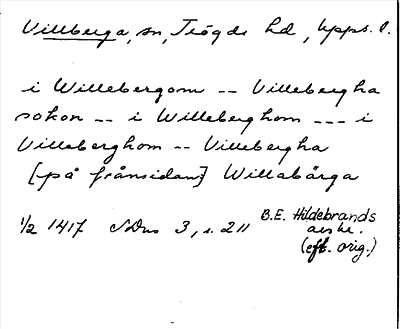 Villberga, sn, Trögds hd, Upps. l.
i Willebergom -- Villebergha
sokon -- i Willeberghom --- i
Villeberghom -- Villebergha
[på frånsidan] Willabärga
1/2 1417 SDns 3, s. 211 B.E. Hildebrands
avskr.
(eft. orig.)